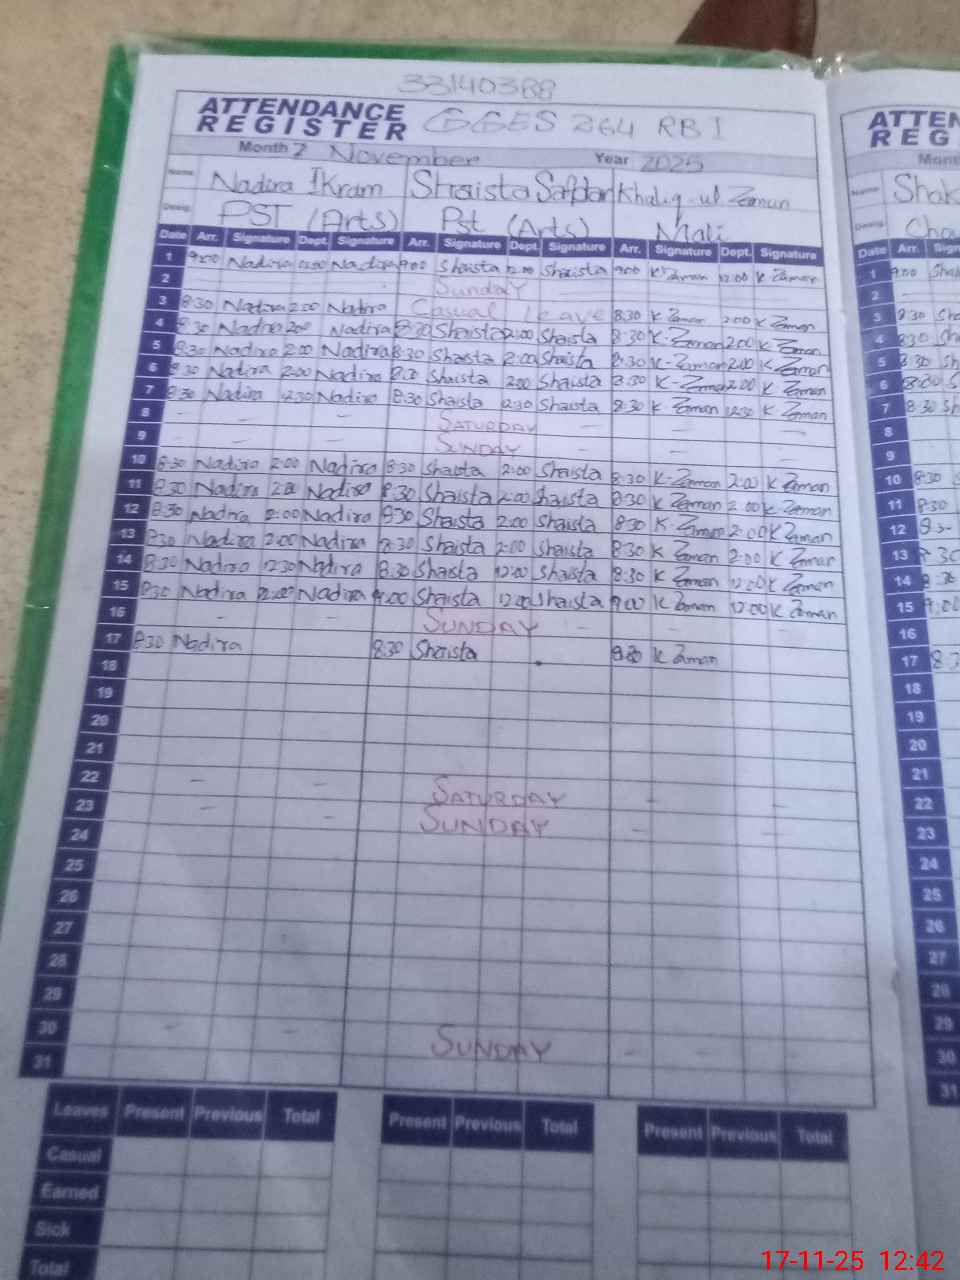 33140388
ATTENDANCE REGISTER GGES 264 RB I
Month November Year 2025
Name Nadira Ikram Shaista Safdar Khaliq-ul Zaman
Desig. PST (Arts) Pst (Arts) Mali
Date Arr. Signature Dept. Signature Arr. Signature Dept. Signature Arr. Signature Dept. Signature
1 9:00 Nadira 12:00 Nadira 9:00 Shaista 12:00 Shaista 9:00 K Zaman 12:00 K Zaman
2 Sunday
3 8:30 Nadira 2:00 Nadira Casual leave 8:30 K Zaman 2:00 K Zaman
4 8:30 Nadira 2:00 Nadira 8:30 Shaista 2:00 Shaista 8:30 K-Zaman 2:00 K Zaman
5 8:30 Nadira 2:00 Nadira 8:30 Shaista 2:00 Shaista 8:30 K-Zaman 2:00 K Zaman
6 8:30 Nadira 2:00 Nadira 8:30 Shaista 2:00 Shaista 8:30 K-Zaman 2:00 K Zaman
7 8:30 Nadira 12:30 Nadira 8:30 Shaista 12:30 Shaista 8:30 K Zaman 12:30 K Zaman
8 - - SATURDAY - - -
9 - - SUNDAY - - -
10 8:30 Nadira 2:00 Nadira 8:30 Shaista 2:00 Shaista 8:30 K-Zaman 2:00 K Zaman
11 8:30 Nadira 2:00 Nadira 8:30 Shaista 2:00 Shaista 8:30 K Zaman 2:00 K-Zaman
12 8:30 Nadira 2:00 Nadira 8:30 Shaista 2:00 Shaista 8:30 K-Zaman 2:00 K Zaman
13 8:30 Nadira 2:00 Nadira 8:30 Shaista 2:00 Shaista 8:30 K Zaman 2:00 K Zaman
14 8:30 Nadira 12:30 Nadira 8:30 Shaista 12:00 Shaista 8:30 K Zaman 12:00 K Zaman
15 8:30 Nadira 12:00 Nadira 9:00 Shaista 12:00 Shaista 9:00 K Zaman 12:00 K Zaman
16 - - SUNDAY - -
17 8:30 Nadira 8:30 Shaista K Zaman
18
19
20
21
22 - - SATURDAY - -
23 - - SUNDAY - -
24
25
26
27
28
29
30 - - SUNDAY - - -
31
Leaves Present Previous Total Present Previous Total Present Previous Total
Casual
Earned
Sick
Total
ATTEN
REG
Mont
Name Shak
Desig. Cho
Date Arr. Sign
1 9:00 Sha
2
3 8:30 Sha
4 8:30 Sh
5 8:30 Sh
6 8:30 S
7 8:30 Sh
8
9
10 8:30
11 8:30
12 8:3
13 8:30
14 8:30
15 9:00
16
17 8:3
18
19
20
21
22
23
24
25
26
27
28
29
30
31
17-11-25 12:42